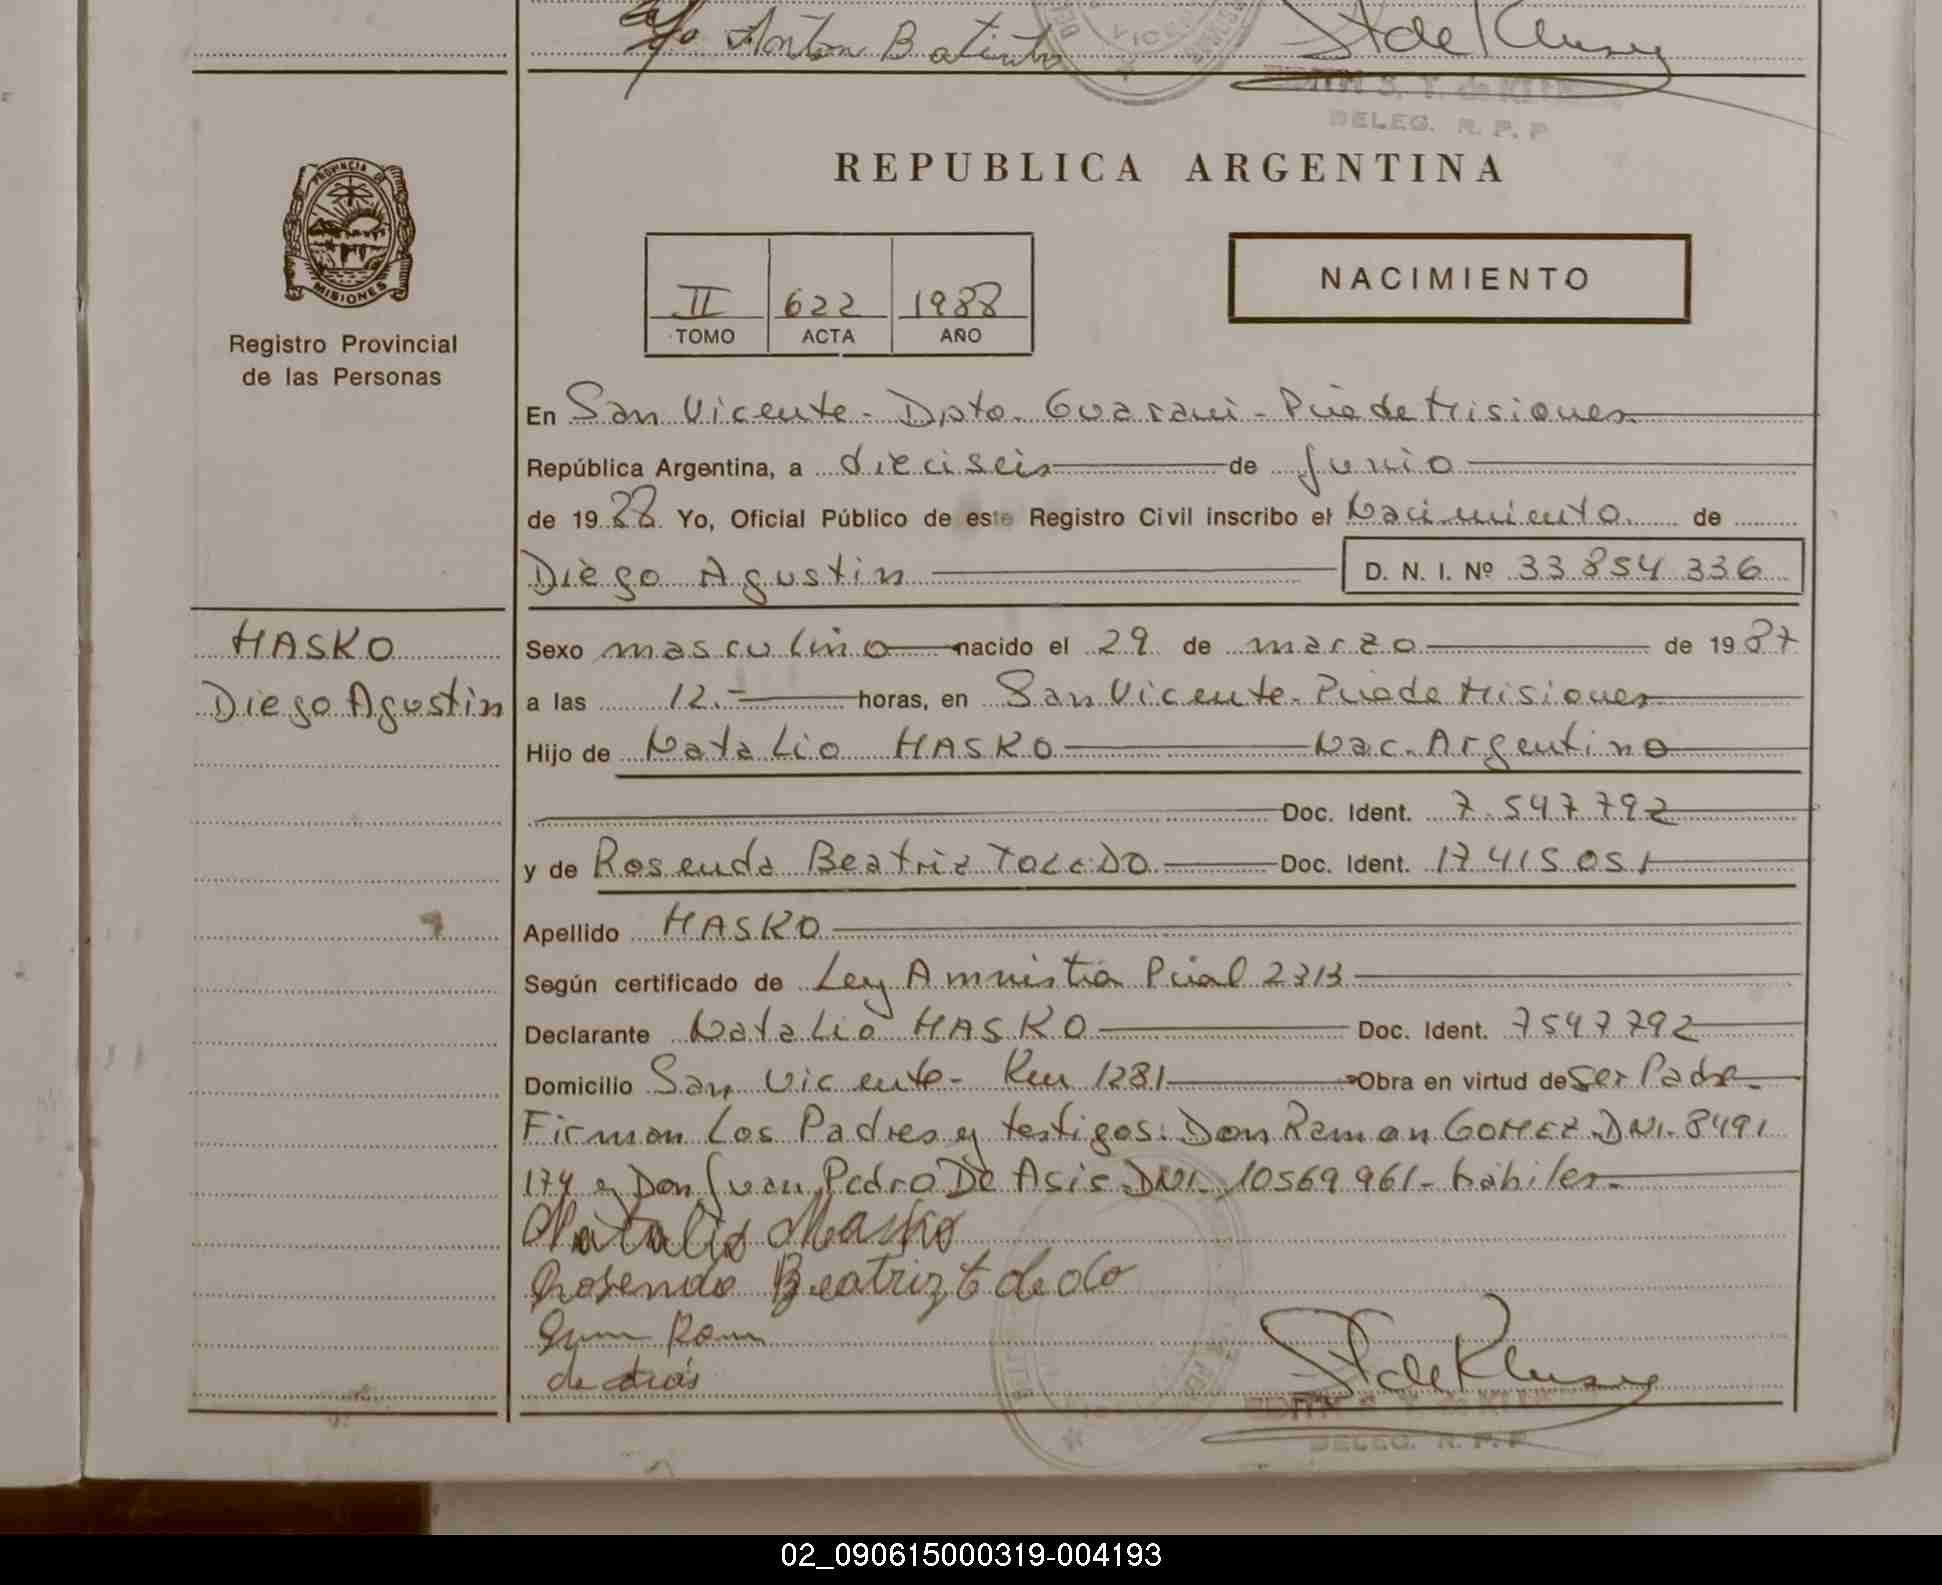 Anton Batista
VICE
EDITH S. T. de KLE
DELEG. R. P. P
REPUBLICA ARGENTINA
PROVINCIA DE
MISIONES
Registro Provincial
de las Personas
II 622 1988
TOMO ACTA AÑO
NACIMIENTO
En San Vicente - Dpto. Guarani - Pcia de Misiones
República Argentina, a dieciseis de Junio
de 1988 Yo, Oficial Público de este Registro Civil inscribo el Nacimiento de
Diego Agustin D. N. I. Nº 33 854 336
HASKO
Diego Agustin
Sexo masculino nacido el 29 de marzo de 1987
a las 12.- horas, en San Vicente - Pcia de Misiones
Hijo de Natalio HASKO Nac. Argentino
Doc. Ident. 7.547792
y de Rosenda Beatriz TOLEDO Doc. Ident. 17415051
Apellido HASKO
Según certificado de Ley Amnistia Pcial 2313
Declarante Natalio HASKO Doc. Ident. 7547792
Domicilio San Vicente - Km 1281 Obra en virtud de Ser Padre.
Firman Los Padres y testigos: Don Ramon GOMEZ DNI. 8491
174 y Don Juan Pedro De Asis DNI. 10569961 - hábiles.
Natalio Hasko
Rosenda Beatriz toledo
de
St de Klusny
EDITH S. T. de KLE
DELEG. R. P. P
02_090615000319-004193